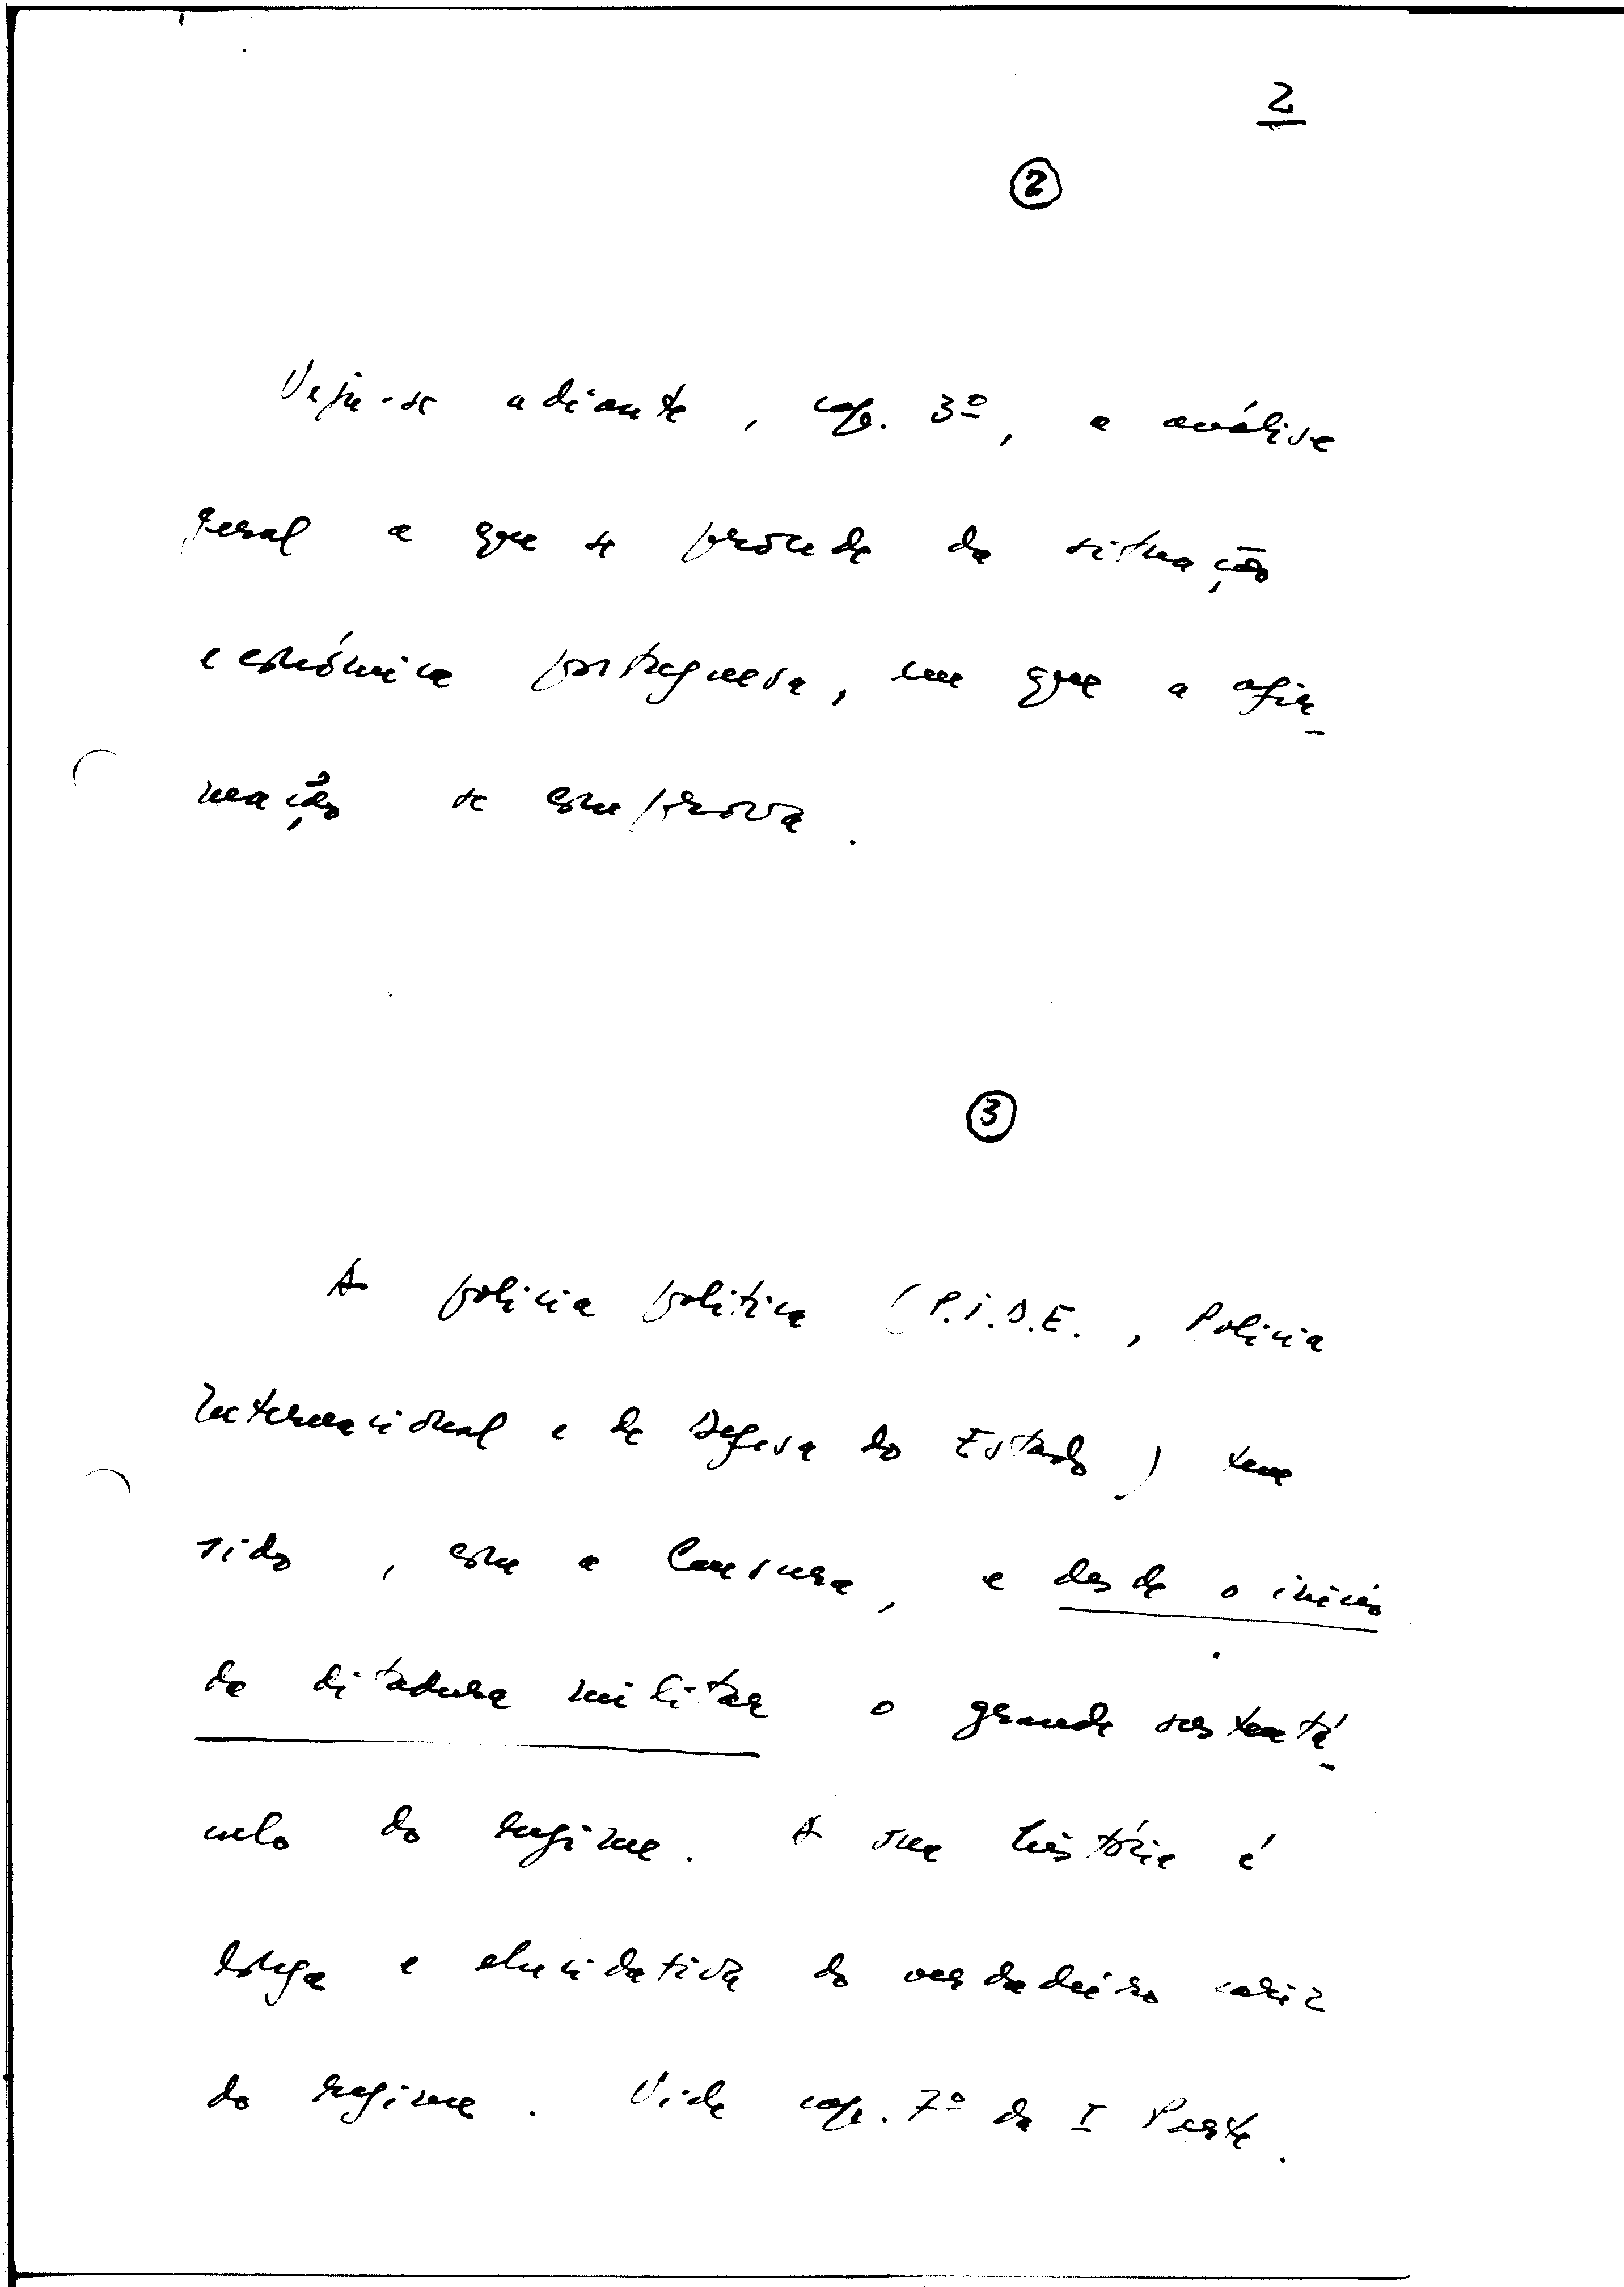 2
2
Veja-se adiante, cap. 3º, a análise
geral a que se procede da situação
económica portuguesa, em que a afir-
mação se comprova.
3
A policia politica (P.I.D.E., Policia
Internacional e de Defesa do Estado) tem
sido, com a Censura, e desde o início
da ditadura militar o grande sustentá-
culo do regime. A sua história é
longa e elucidativa do verdadeiro cariz
do regime. Vide cap. 7º da I Parte.